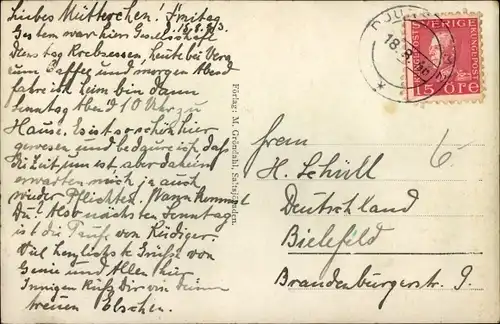 Liebes Mütterchen! Freitag
18.8.
Gestern war hier Gesellschaft
Dienstag Krebsessen, heute bei Vera
zum Caffee und morgen Abend
fahre ich heim bin dann
Sonntag Abend 10 Uhr zu
Hause. Es ist so schön hier
gewesen und bedaure ich daß
die Zeit um ist, aber daheim
erwarten mich ja auch
wieder Pflichten. Wann kommst
Du? Also nächsten Sonntag
ist die Taufe von Rüdiger.
Viel herzlichste Grüße von
Genie und Allen hier
Innigen Kuß Dir von Deinem
treuen Elschen.
Förlag: M. Gröndahl, Saltsjö
DJU
18.8.
SVERIGE
KUNGL POST
KUNGL POST
15 ÖRE
6
H. Schüll
Deutschland
Bielefeld
Brandenburgerstr. 9.